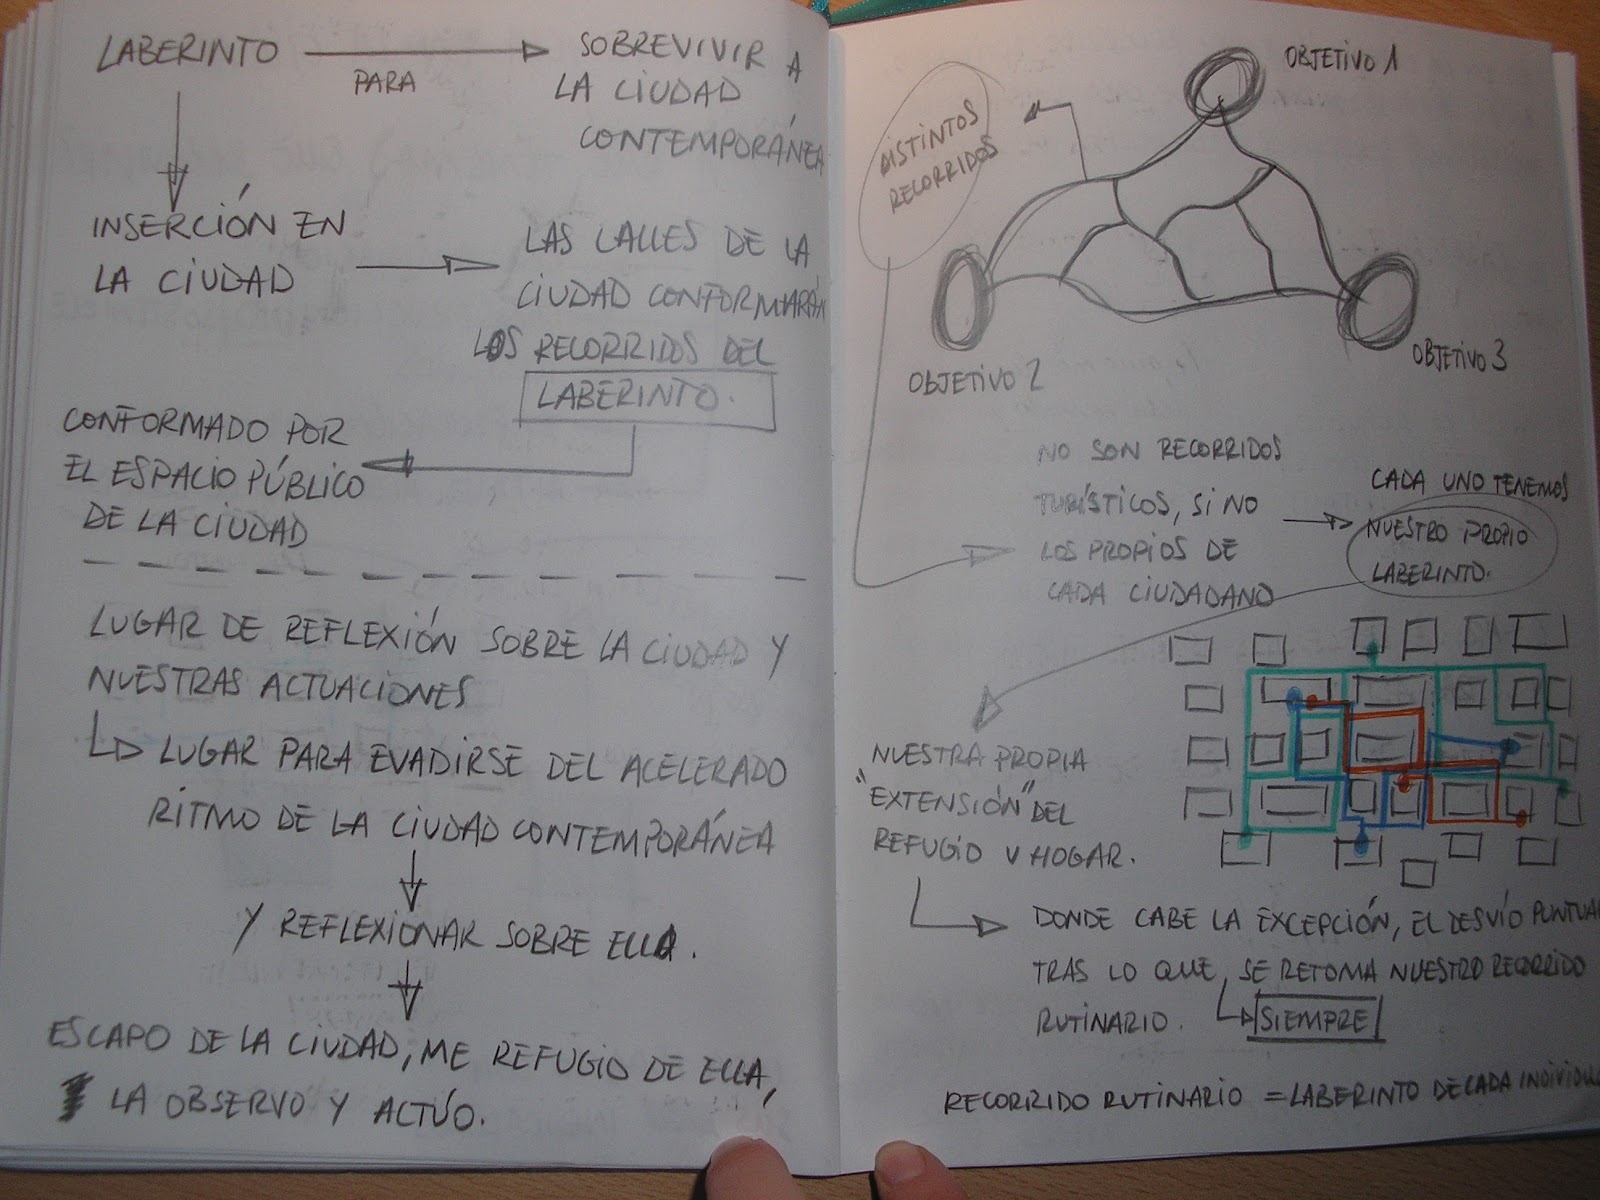 LABERINTO
PARA
SOBREVIVIR A
LA CIUDAD
CONTEMPORÁNEA
INSERCIÓN EN
LA CIUDAD
LAS CALLES DE LA
CIUDAD CONFORMARÁN
LOS RECORRIDOS DEL
LABERINTO.
CONFORMADO POR
EL ESPACIO PÚBLICO
DE LA CIUDAD
LUGAR DE REFLEXIÓN SOBRE LA CIUDAD Y
NUESTRAS ACTUACIONES
LUGAR PARA EVADIRSE DEL ACELERADO
RITMO DE LA CIUDAD CONTEMPORÁNEA
Y REFLEXIONAR SOBRE ELLA.
ESCAPO DE LA CIUDAD, ME REFUGIO DE ELLA,
LA OBSERVO Y ACTÚO.
OBJETIVO 1
DISTINTOS
RECORRIDOS
OBJETIVO 2
OBJETIVO 3
NO SON RECORRIDOS
TURÍSTICOS, SI NO
LOS PROPIOS DE
CADA CIUDADANO
CADA UNO TENEMOS
NUESTRO PROPIO
LABERINTO.
NUESTRA PROPIA
"EXTENSIÓN" DEL
REFUGIO U HOGAR.
DONDE CABE LA EXCEPCIÓN, EL DESVÍO PUNTUA
TRAS LO QUE, SE RETOMA NUESTRO RECORRIDO
RUTINARIO.
SIEMPRE
RECORRIDO RUTINARIO = LABERINTO DE CADA INDIVIDU